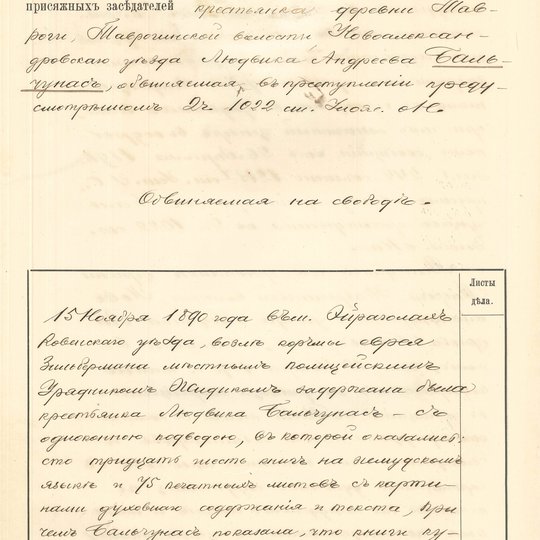 присяжныхъ засѣдателей крестьянка деревни Тав-
роги, Таврогинской волости Новоалексан-
дровскаго уѣзда Людвика Андреева Баль-
чунасъ, обвиняемая въ преступленіи преду-
смотрѣнномъ 2 ч. 1022 ст. Улож. о Н.
Обвиняемая на свободѣ.
Листы
дѣла.
15 Ноября 1890 года въ м. Эйраголахъ
Ковенскаго уѣзда, возлѣ корчмы еврея
Зильбермана мѣстнымъ полицейскимъ
Урядникомъ задержана была
крестьянка Людвика Бальчунасъ – съ
одноконною подводою, въ которой оказались:
сто тридцать шесть книгъ на жмудскомъ
языкѣ и 75 печатныхъ листовъ съ карти-
нами духовнаго содержанія и текста, при
чемъ Бальчунасъ показала, что книги ку-